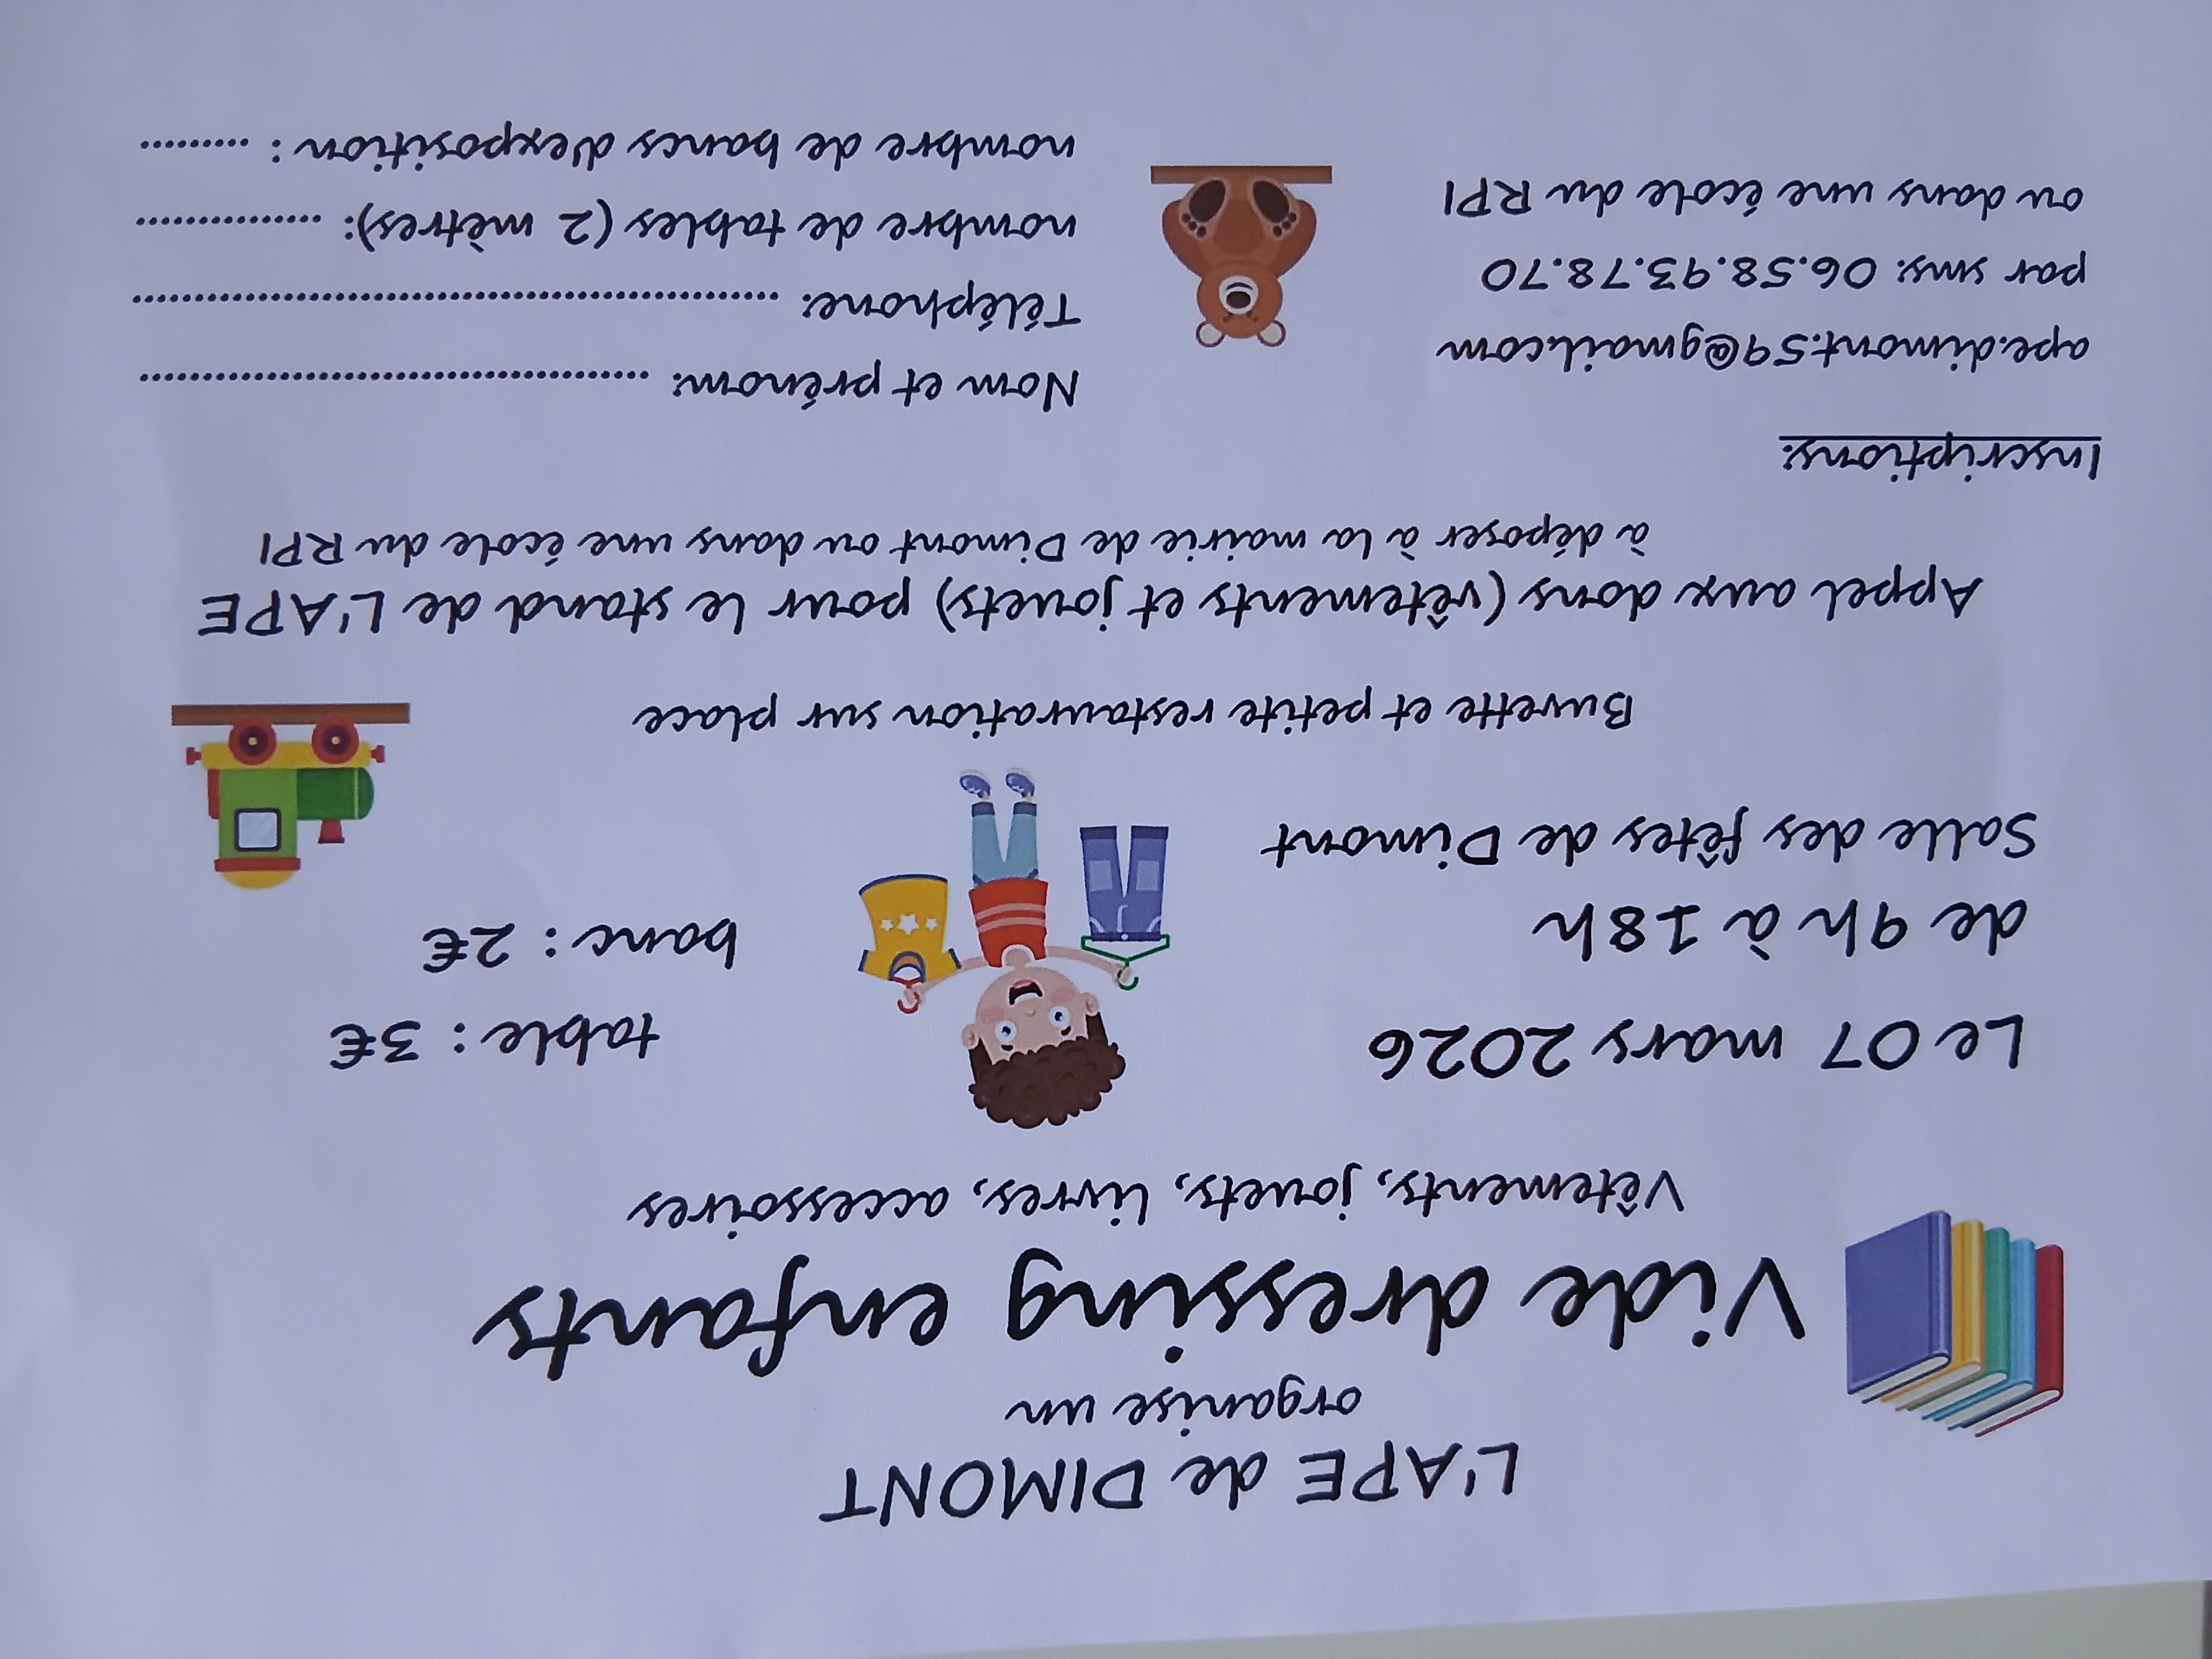 L'APE de DIMONT
organise un
Vide dressing enfants
Vêtements, jouets, livres, accessoires
Le 07 mars 2026
de 9h à 18h
Salle des fêtes de Dimont
table : 3€
banc : 2€
Buvette et petite restauration sur place
Appel aux dons (vêtements et jouets) pour le stand de L'APE
à déposer à la mairie de Dimont ou dans une école du RPI
Inscriptions:
ape.dimont.59@gmail.com
par sms: 06.58.93.78.70
ou dans une école du RPI
Nom et prénom: ..........................................
Téléphone: .....................................................
nombre de tables (2 mètres): ................
nombre de bancs d'exposition : .........